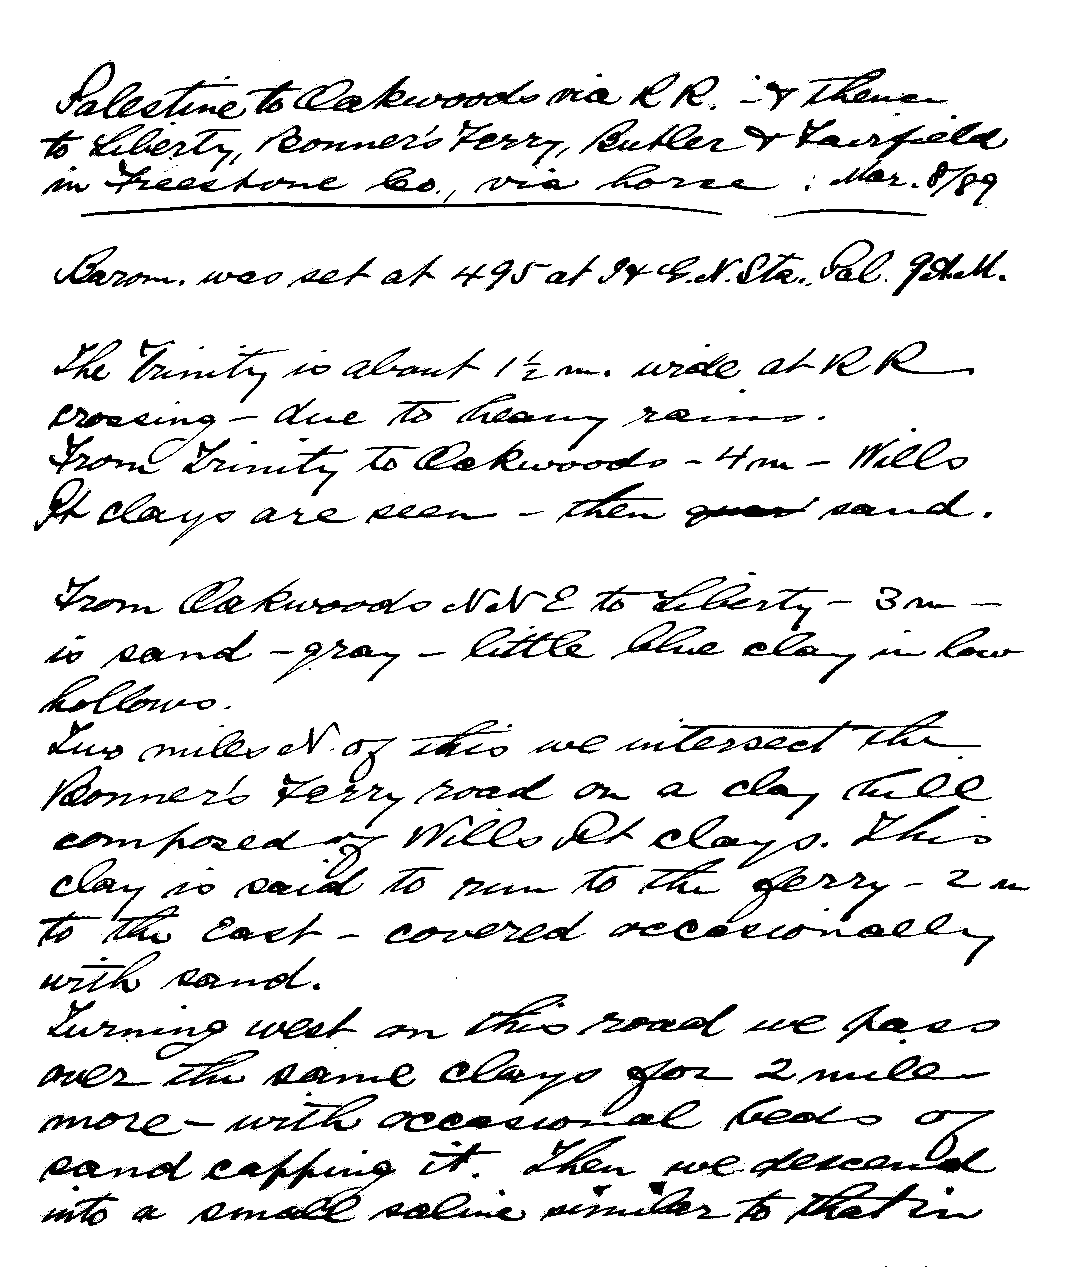 Palestine to Oakwoods via R R. - & thence
to Liberty, Bonner's Ferry, Butler & Fairfield
in Freestone Co., via horse : Mar. 8/89
Barom. was set at 495 at I & G. N. Sta., Pal. 9 A.M.
The Trinity is about 1½ m. wide at R R
crossing - due to heavy rains.
From Trinity to Oakwoods - 4 m - Wills
Pt clays are seen - then sand.
From Oakwoods N N E to Liberty - 3 m -
is sand - gray - little blue clay in low
hollows.
Two miles N. of this we intersect the
Bonner's Ferry road on a clay hill
composed of Wills Pt clays. This
clay is said to run to the ferry - 2 m
to the East - covered occasionally
with sand.
Turning west on this road we pass
over the same clays for 2 miles
more - with occasional beds of
sand capping it. Then we descend
into a small saline similar to that in